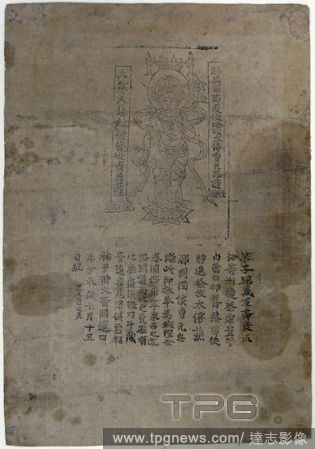 歸義軍節度使檢校太傅曹元忠造
大慈大悲救苦觀世音菩薩
弟子歸義軍節度瓜
沙等州觀察處置管
內營田押蕃落等使
特進檢校太傅譙
郡開國侯曹元忠
雕此印板奉為城隍安
泰闔郡康寧東西之道
路開通南北之凶渠順
化癘疾消散刁斗藏
音隨喜見聞俱霑福
祐于時大晉開運四
年丁未歲七月十五
日紀 匠人雷延美
TPG
www.tpgnews.com / 達志影像